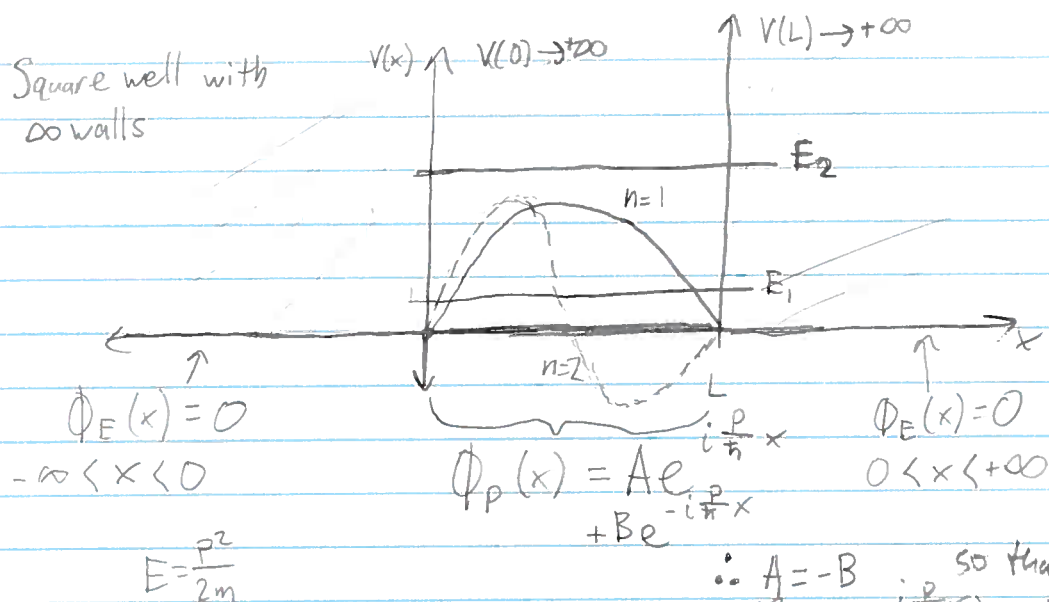 Square well with
∞ walls
V(x) V(0)→+∞
V(L)→+∞
E₂
n=1
E₁
x
n=2
L
ϕ_E(x)=0
-∞<x<0
ϕ_p(x) = Ae^{i p/ħ x}
+Be^{-i p/ħ x}
ϕ_E(x)=0
0<x<+∞
E=p²/2m
∴ A=-B so tha